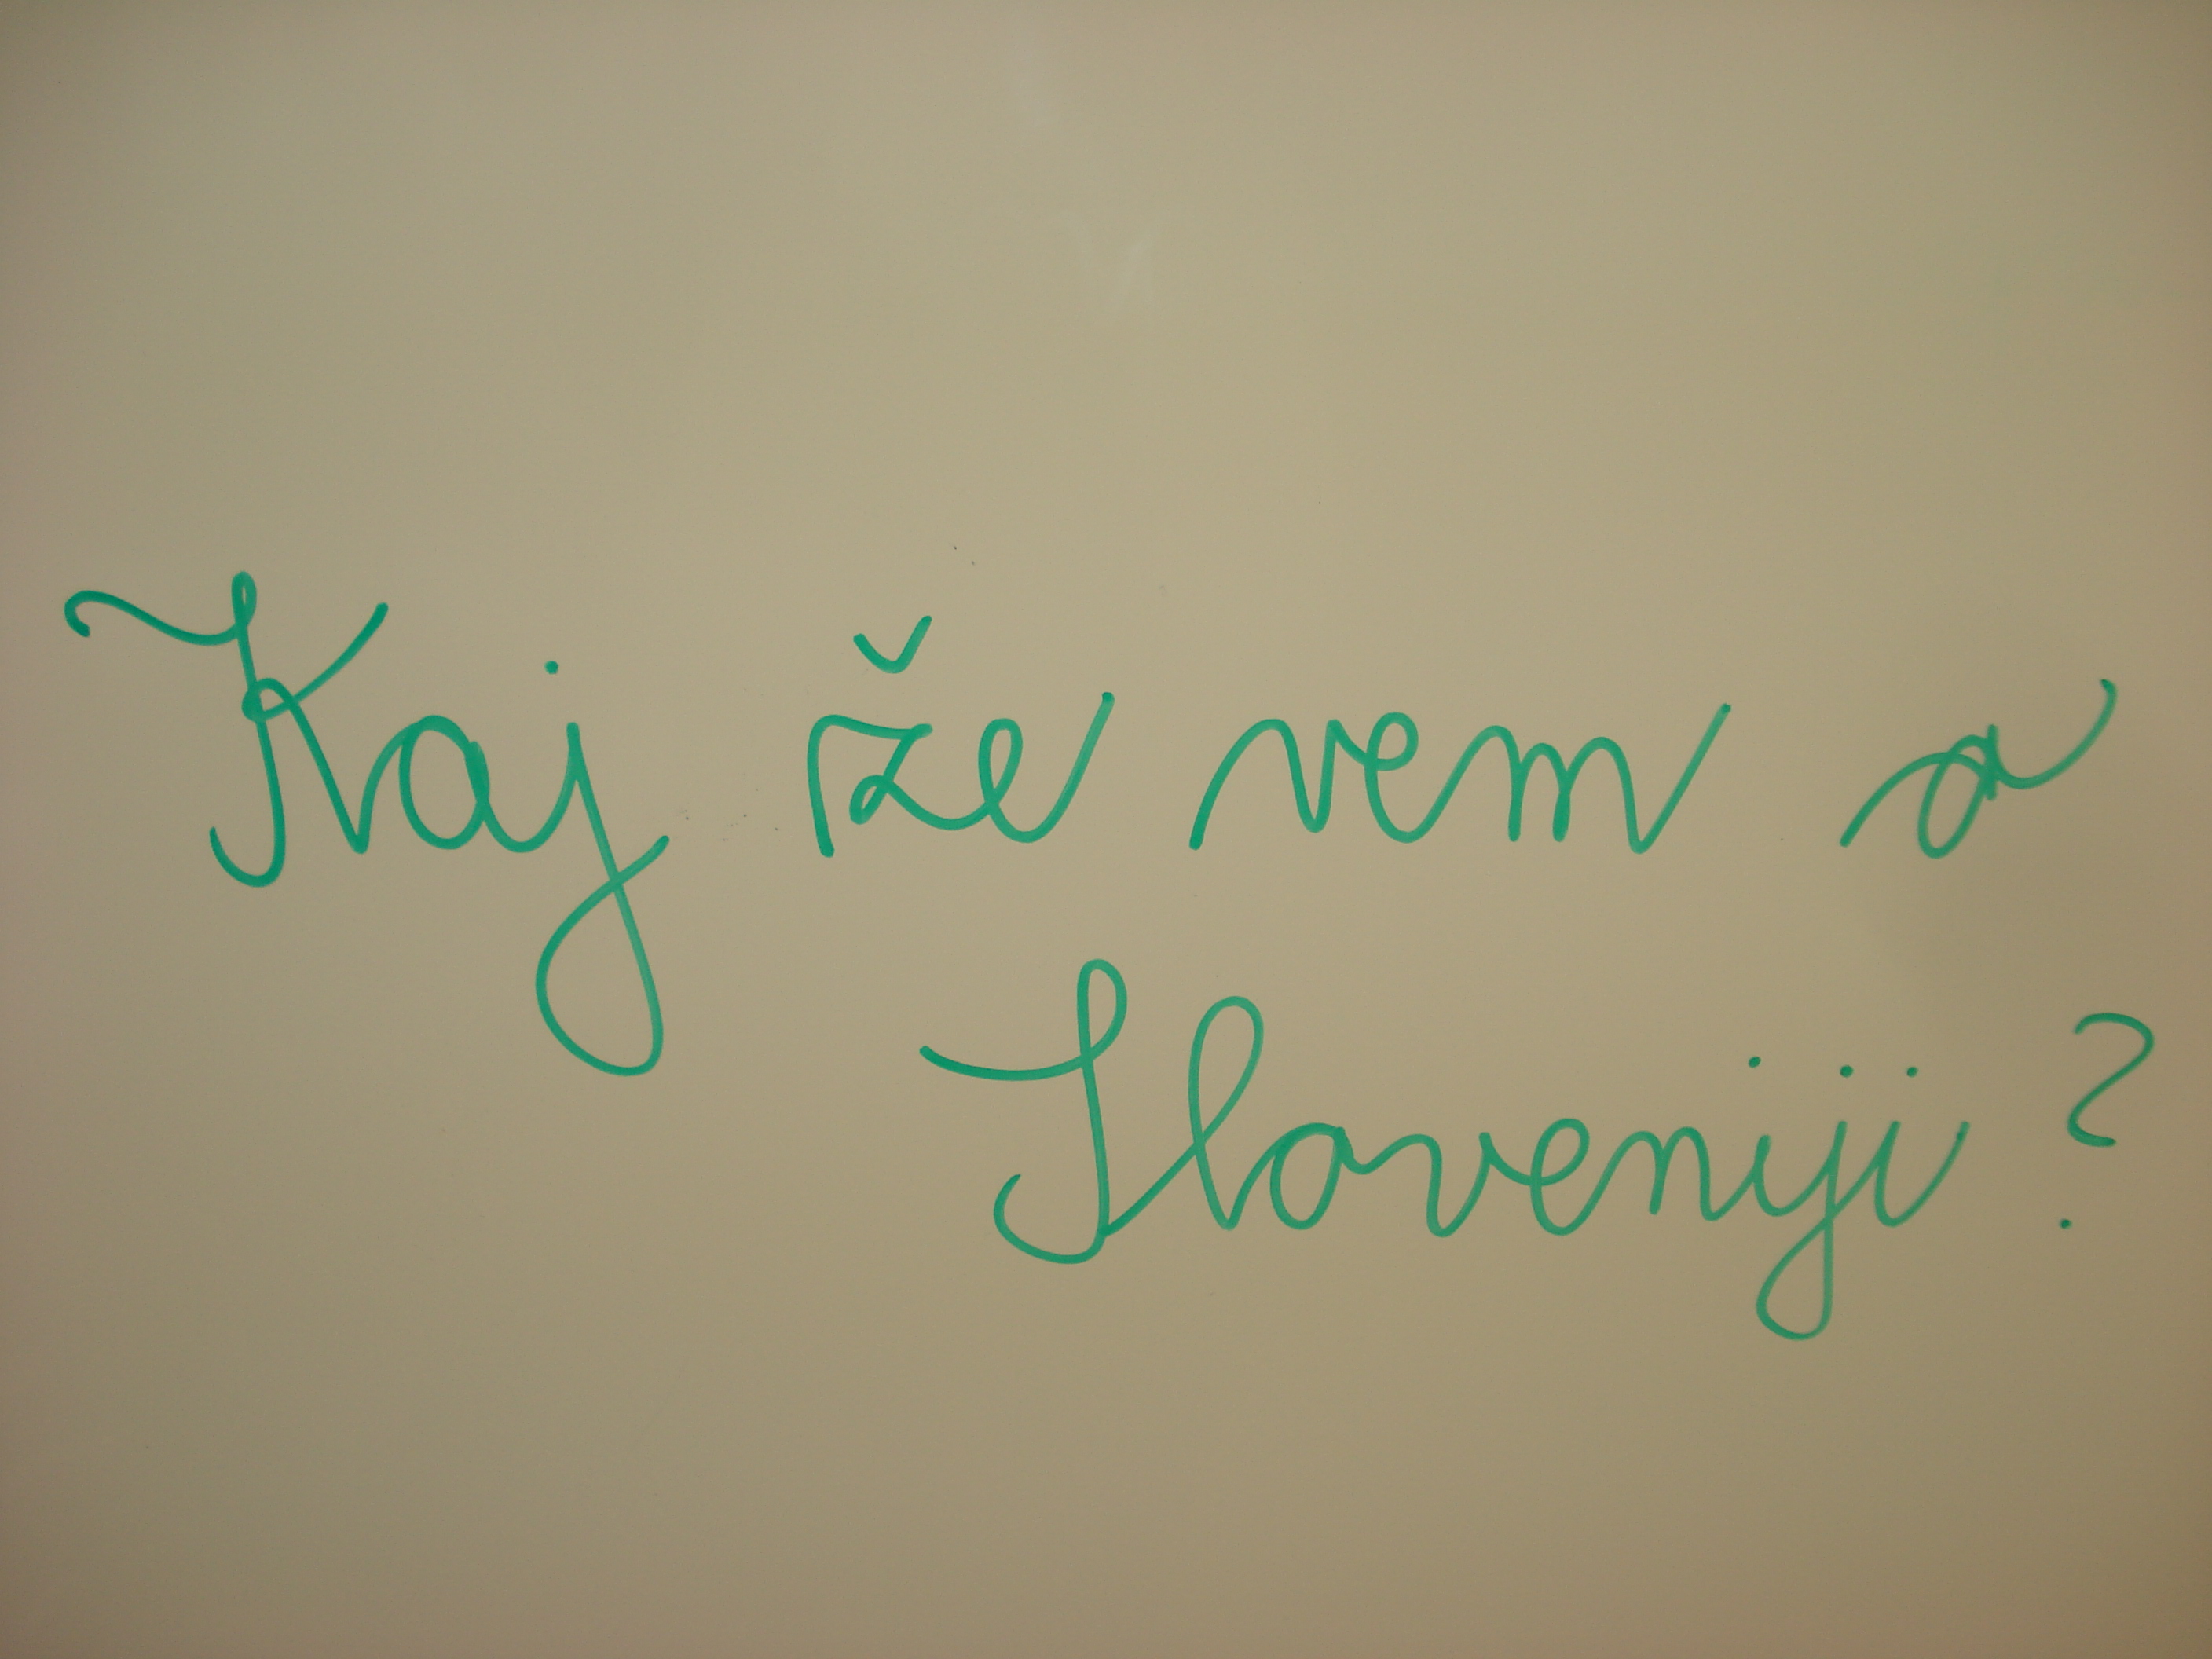 Kaj že vem o
Sloveniji?